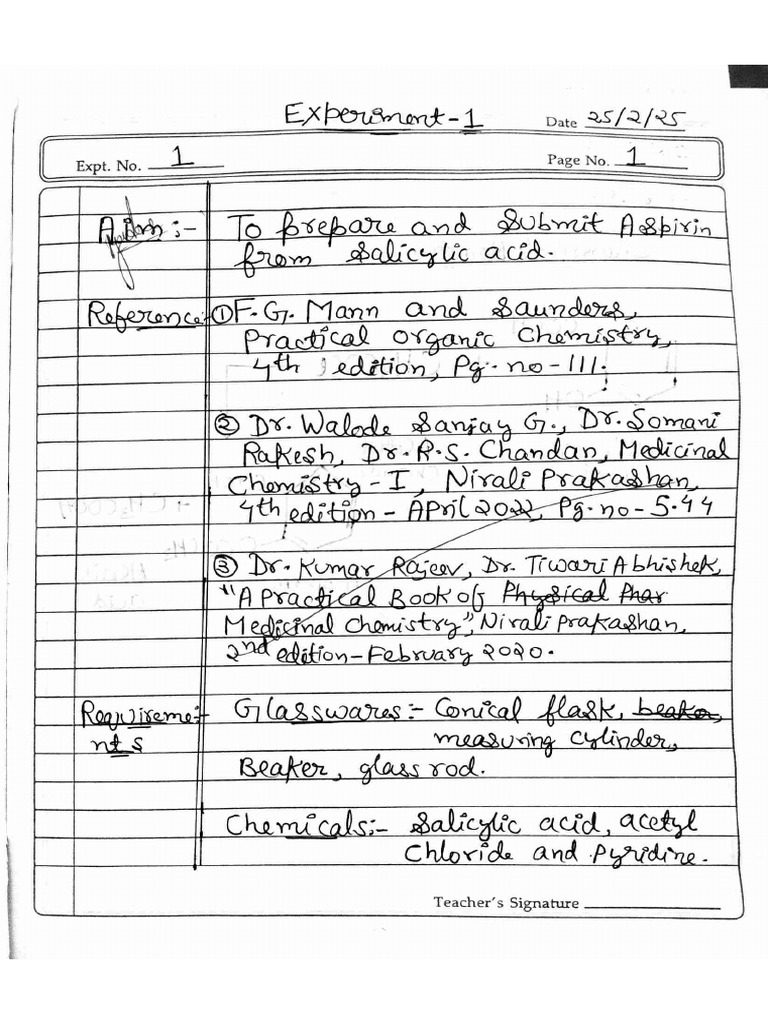 Experiment-1
Date 25/2/25
Expt. No. 1
Page No. 1
Aim :- To prepare and submit Aspirin
from salicylic acid.
Reference:- ① F. G. Mann and Saunders,
Practical organic Chemistry,
4th edition, Pg. no - 111.
② Dr. Walode Sanjay G., Dr. Somani
Rakesh, Dr. R. S. Chandan, Medicinal
Chemistry - I, Nirali Prakashan,
4th edition - April 2022, Pg. no - 5.44
③ Dr. Kumar Rajeev, Dr. Tiwari Abhishek,
"A Practical Book of Physical Phar
Medicinal Chemistry", Nirali Prakashan,
2nd edition - February 2020.
Requireme- Glasswares:- Conical flask, beaker,
nts measuring cylinder,
Beaker, glass rod.
Chemicals:- Salicylic acid, acetyl
Chloride and Pyridine.
Teacher's Signature